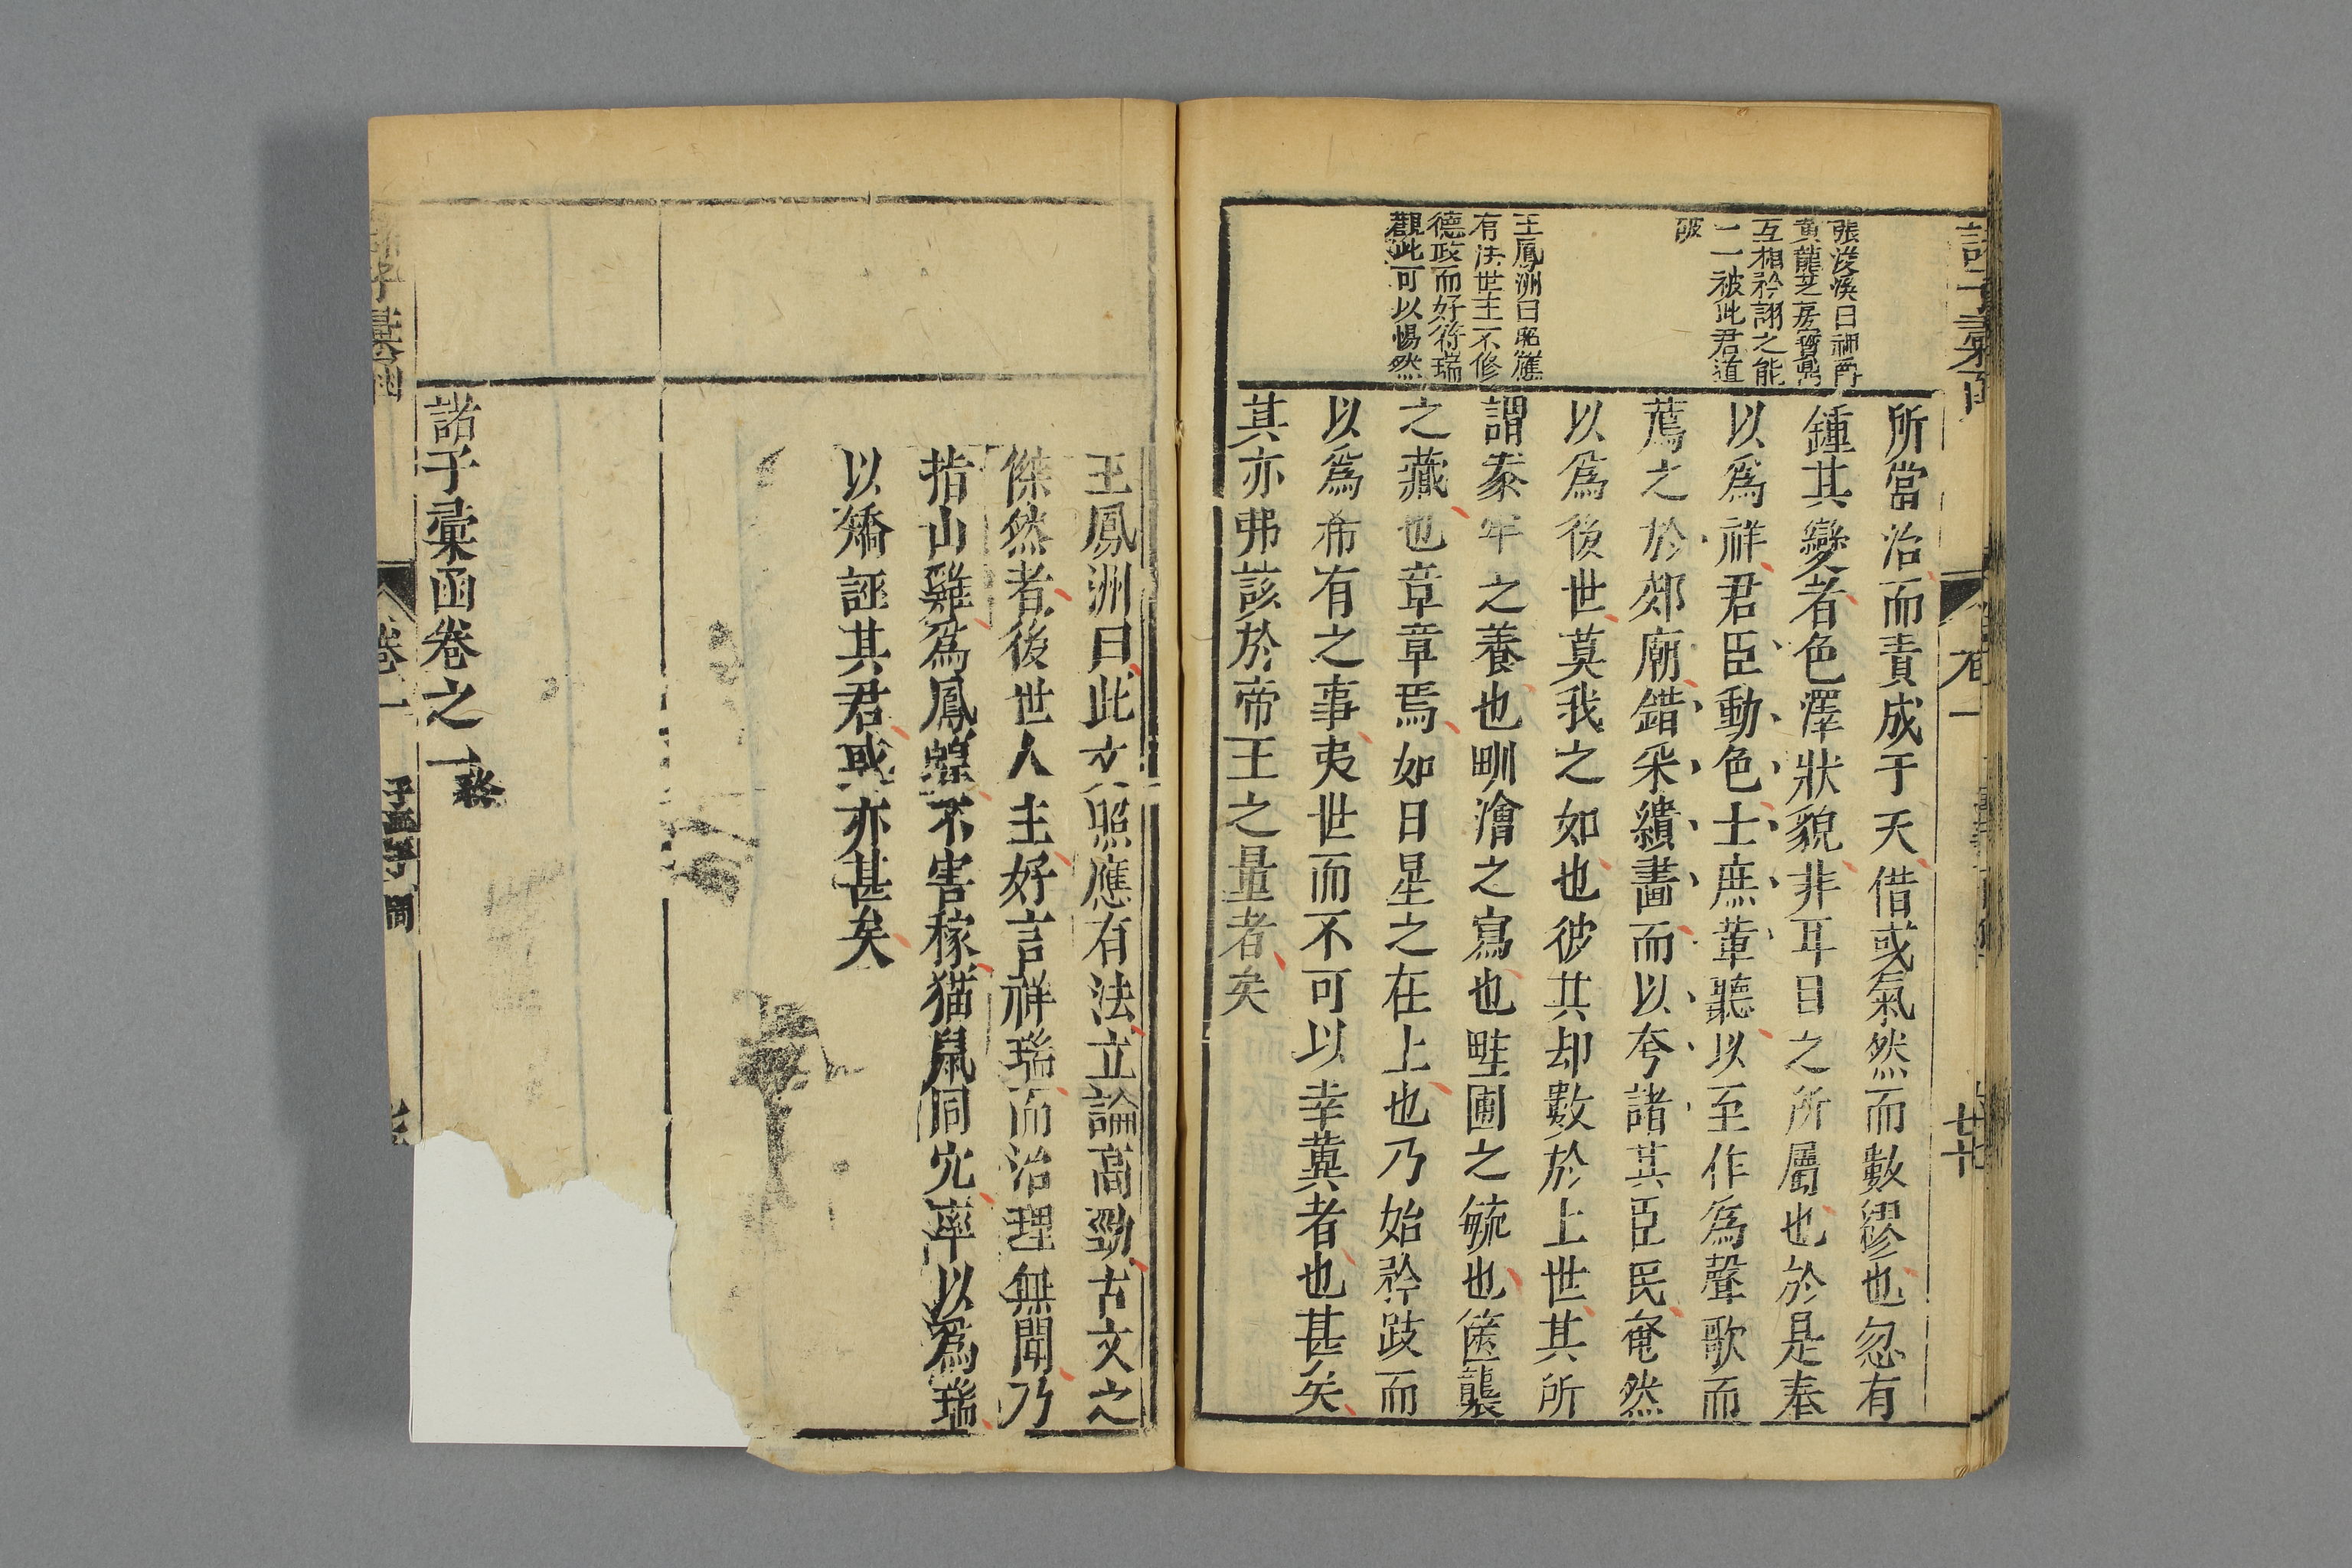 張浚溪曰神爵
黃龍芝房寶鼎
互相矜詡之能
一一被此君道
破
王鳳洲曰照應
有法世主不修
德政而好符瑞
觀此可以惕然
所當治而責成于天借或氣然而數繆也忽有
鍾其變者色澤狀貌非耳目之所屬也於是奉
以爲祥君臣動色士庶輩聽以至作爲聲歌而
薦之於郊廟錯采繢畵而以夸諸其臣民奄然
以爲後世莫我之如也彼其却數於上世其所
謂豢牢之養也甽澮之寫也畦圃之毓也篋襲
之藏也章章焉如日星之在上也乃始矜跂而
以爲希有之事夷世而不可以幸冀者也甚矣
其亦弗該於帝王之量者矣
王鳳洲曰此文照應有法立論高勁古文之
傑然者後世人主好言祥瑞而治理無聞乃
指山雞爲鳳凰不害稼猫鼠同穴率以爲瑞
以矯誣其君或亦甚矣
諸子彙函卷之一終
卷一